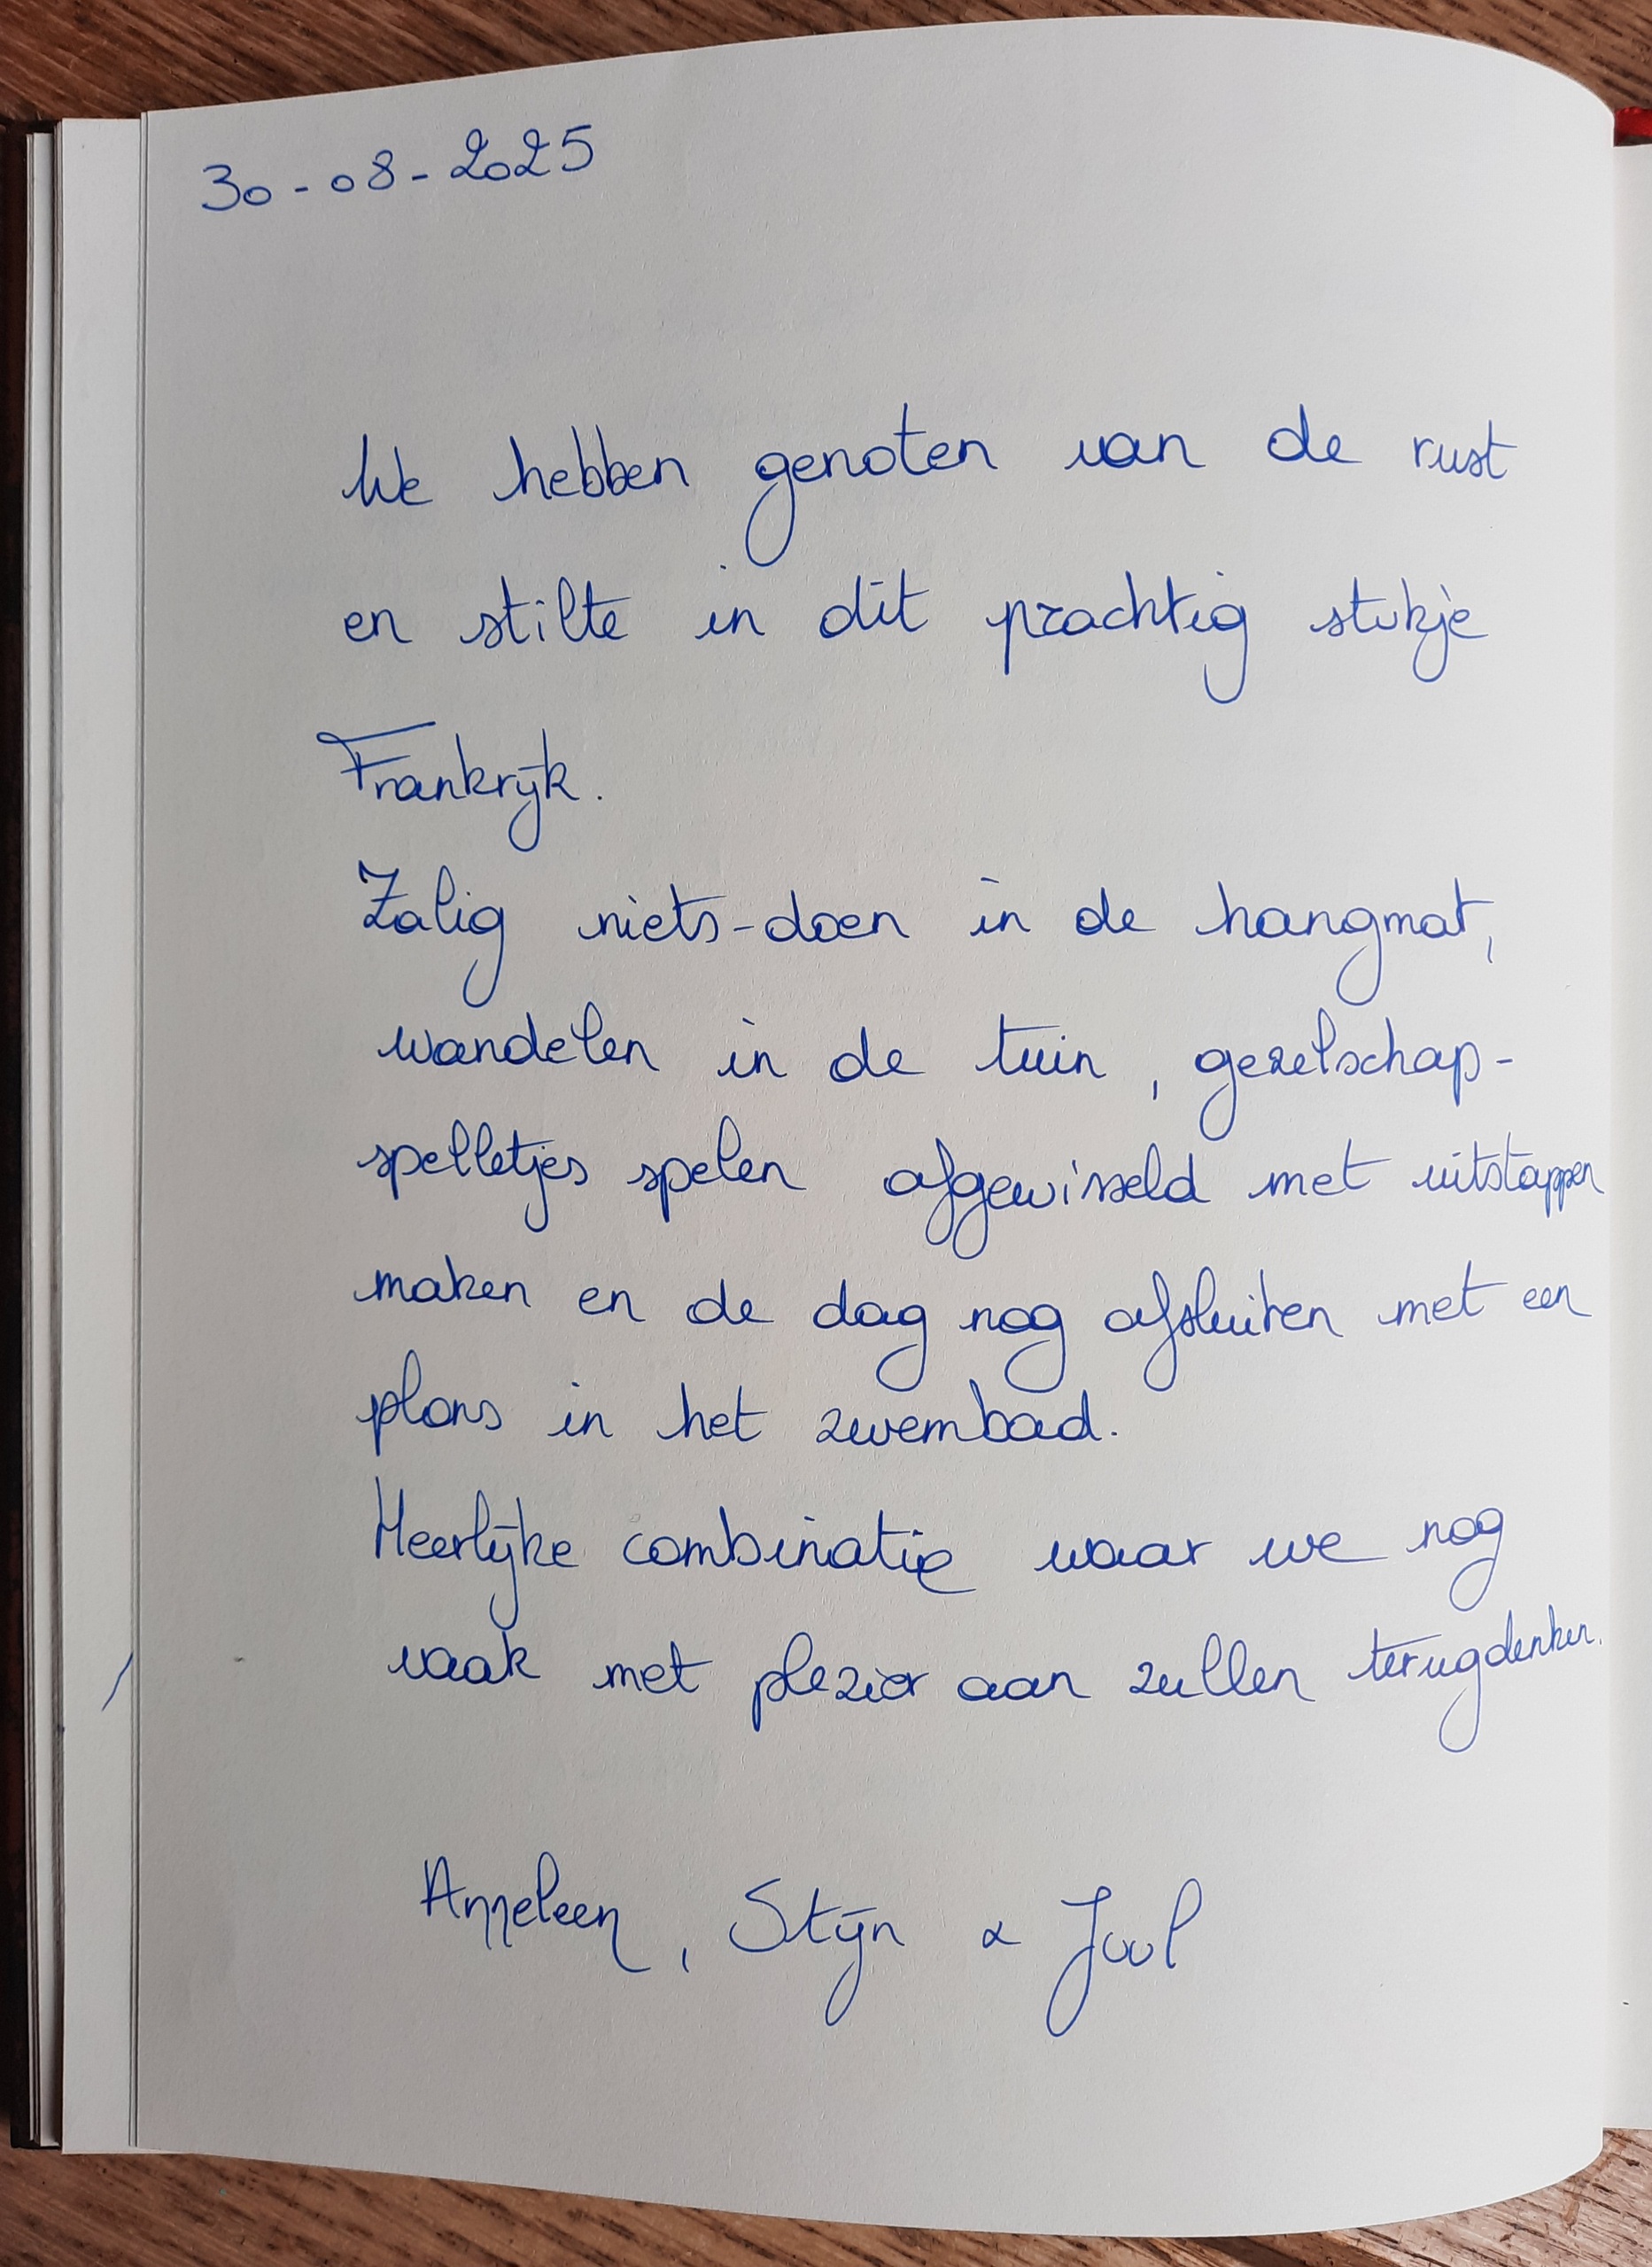 30-08-2025
We hebben genoten van de rust
en stilte in dit prachtig stukje
Frankrijk.
Zalig niets-doen in de hangmat,
wandelen in de tuin, gezelschap-
spelletjes spelen afgewisseld met uitstappen
maken en de dag nog afsluiten met een
plons in het zwembad.
Heerlijke combinatie waar we nog
vaak met plezier aan zullen terugdenken.
Anneleen, Stijn & Juul